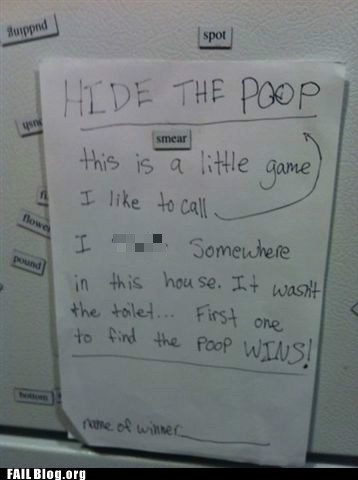 pudding
spot
HIDE THE POOP
smear
this is a little game
I like to call
flower
I Somewhere
pound
in this house. It wasn't
the toilet... First one
to find the POOP WINS!
bottom
name of winner
FAILBlog.org